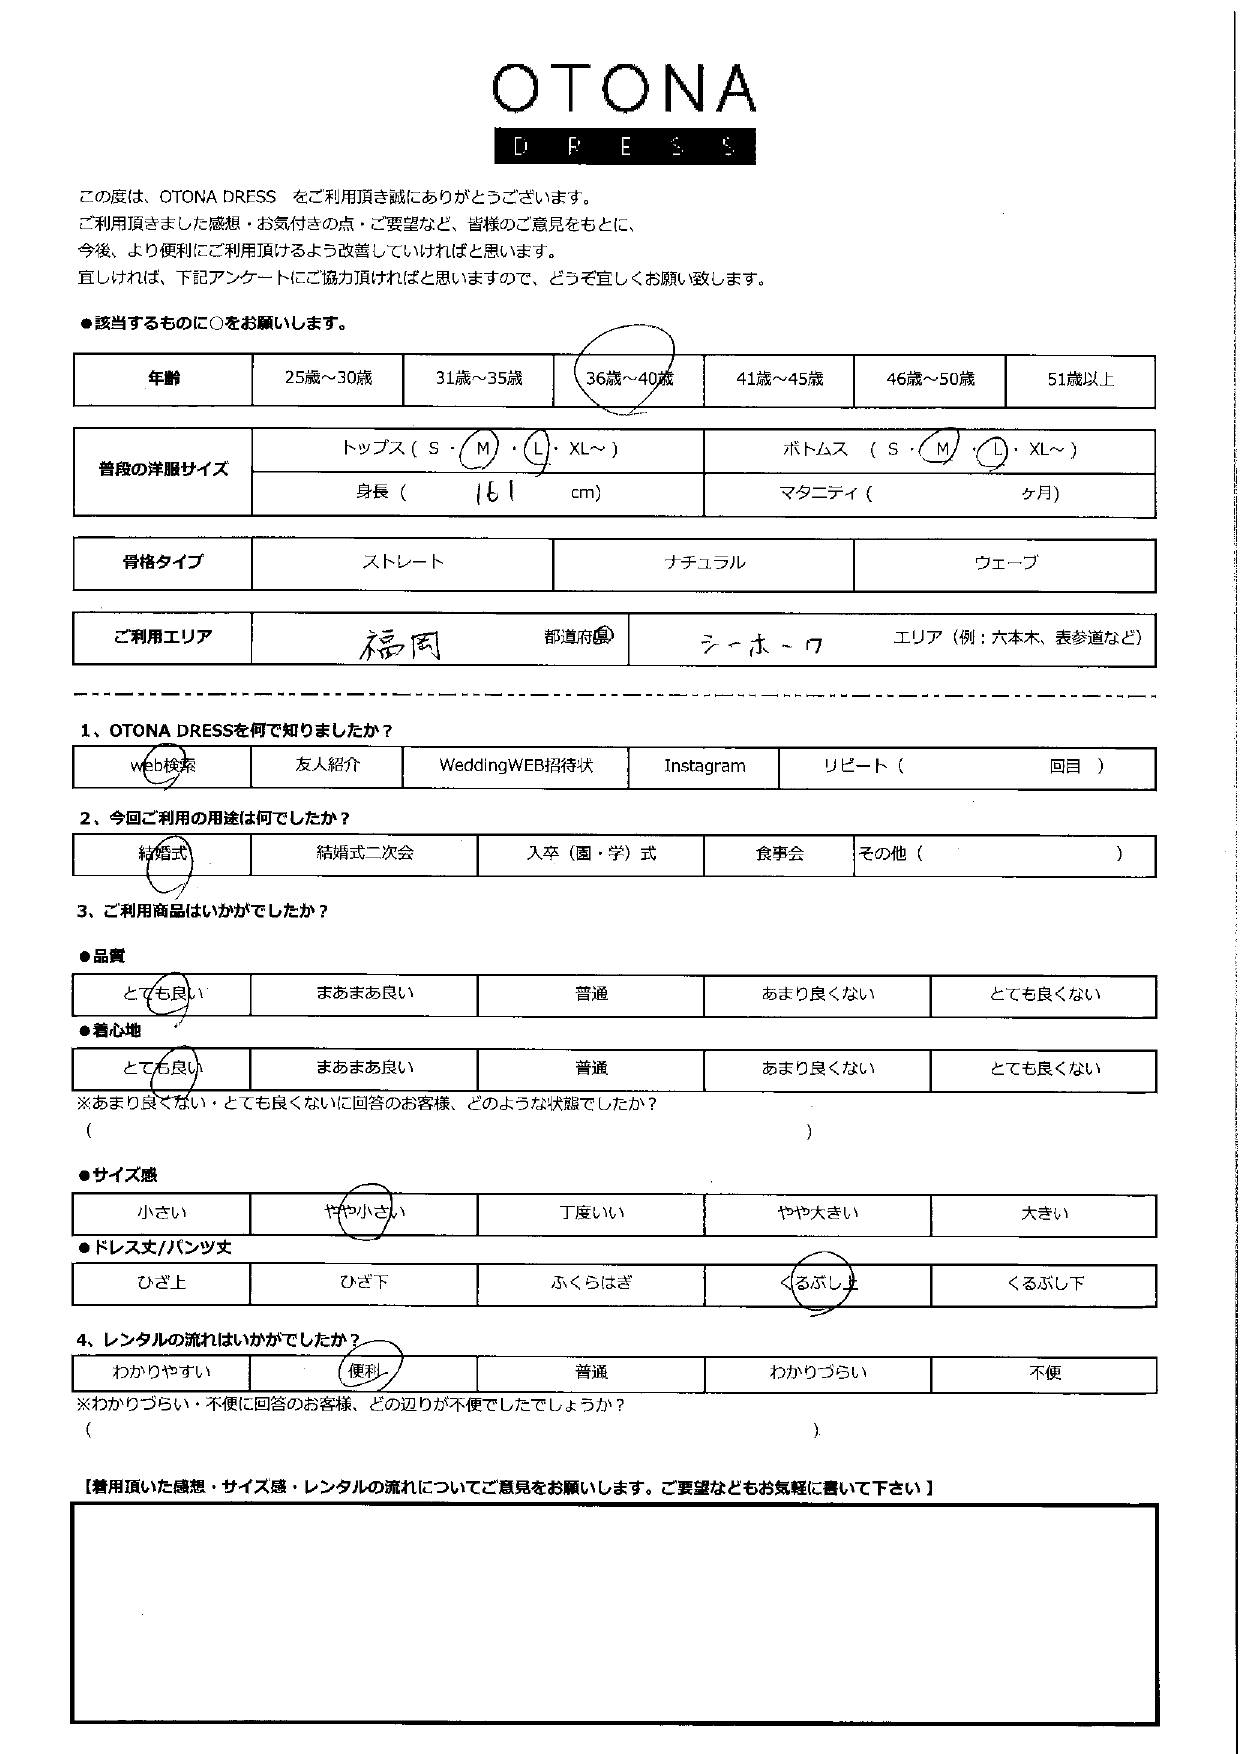 OTONA
DRESS
この度は、OTONA DRESS　をご利用頂き誠にありがとうございます。
ご利用頂きました感想・お気付きの点・ご要望など、皆様のご意見をもとに、
今後、より便利にご利用頂けるよう改善していければと思います。
宜しければ、下記アンケートにご協力頂ければと思いますので、どうぞ宜しくお願い致します。
●該当するものに○をお願いします。
年齢 25歳～30歳 31歳～35歳 36歳～40歳 41歳～45歳 46歳～50歳 51歳以上
普段の洋服サイズ トップス ( S ・ M ・ L ・ XL～ ) ボトムス ( S ・ M ・ L ・ XL～ )
身長 ( 161 cm) マタニティ ( ヶ月)
骨格タイプ ストレート ナチュラル ウェーブ
ご利用エリア 福岡 都道府県 シーホーク エリア（例：六本木、表参道など）
1、OTONA DRESSを何で知りましたか？
web検索 友人紹介 WeddingWEB招待状 Instagram リピート（ 回目 ）
2、今回ご利用の用途は何でしたか？
結婚式 結婚式二次会 入卒（園・学）式 食事会 その他（ ）
3、ご利用商品はいかがでしたか？
●品質
とても良い まあまあ良い 普通 あまり良くない とても良くない
●着心地
とても良い まあまあ良い 普通 あまり良くない とても良くない
※あまり良くない・とても良くないに回答のお客様、どのような状態でしたか？
( )
●サイズ感
小さい やや小さい 丁度いい やや大きい 大きい
●ドレス丈/パンツ丈
ひざ上 ひざ下 ふくらはぎ くるぶし上 くるぶし下
4、レンタルの流れはいかがでしたか？
わかりやすい 便利 普通 わかりづらい 不便
※わかりづらい・不便に回答のお客様、どの辺りが不便でしたでしょうか？
( )
【着用頂いた感想・サイズ感・レンタルの流れについてご意見をお願いします。ご要望などもお気軽に書いて下さい 】